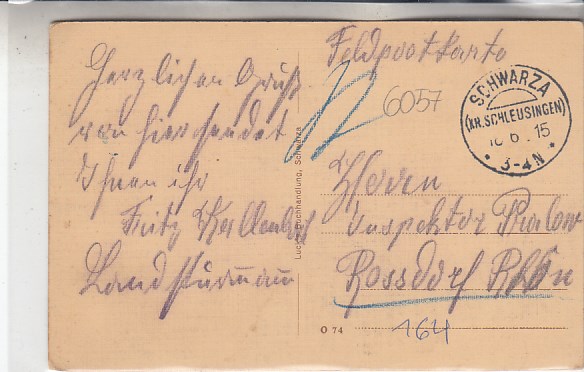 Feldpostkarte
6057
SCHWARZA
(KR.SCHLEUSINGEN)
16 6 . 15
3-4 N
Herzlichen Gruß
von hier sendet
Ihnen ihr
Fritz
Landsturmann
Herrn
Inspektor
Rossdorf Rhön
Buchhandlung, Schwarza
O 74
164